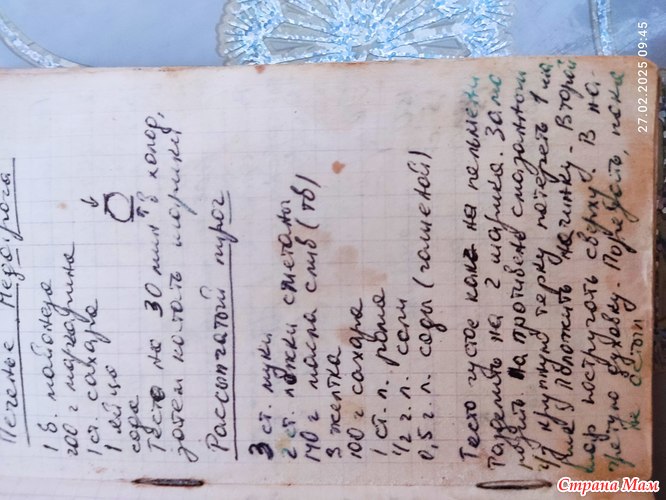 Печенье Недо.рога
1 б. майонеза
200 г маргарина
1 ст. сахара
1 яйцо
сода
тесто на 30 мин в холод,
затем катать шарики
Рассыпчатый пирог
3 ст. муки
2 ст. ложки сметаны
140 г масла слив (тв)
3 желтка
100 г сахара
1 ст. л. рома
1/2 г. л. соли
0,5 г. л. соды (гашеной)
Тесто густое как на пельмени
Разделить на 2 шарика. Замо
розить. На противень смазанный
ч/з крупную терку потереть 1 ша
рик Положить начинку. Второй
шар построгать сверху. В на-
гретую духовку. Порезать, пока
не остыл
27.02.2025 09:45
Страна Мам